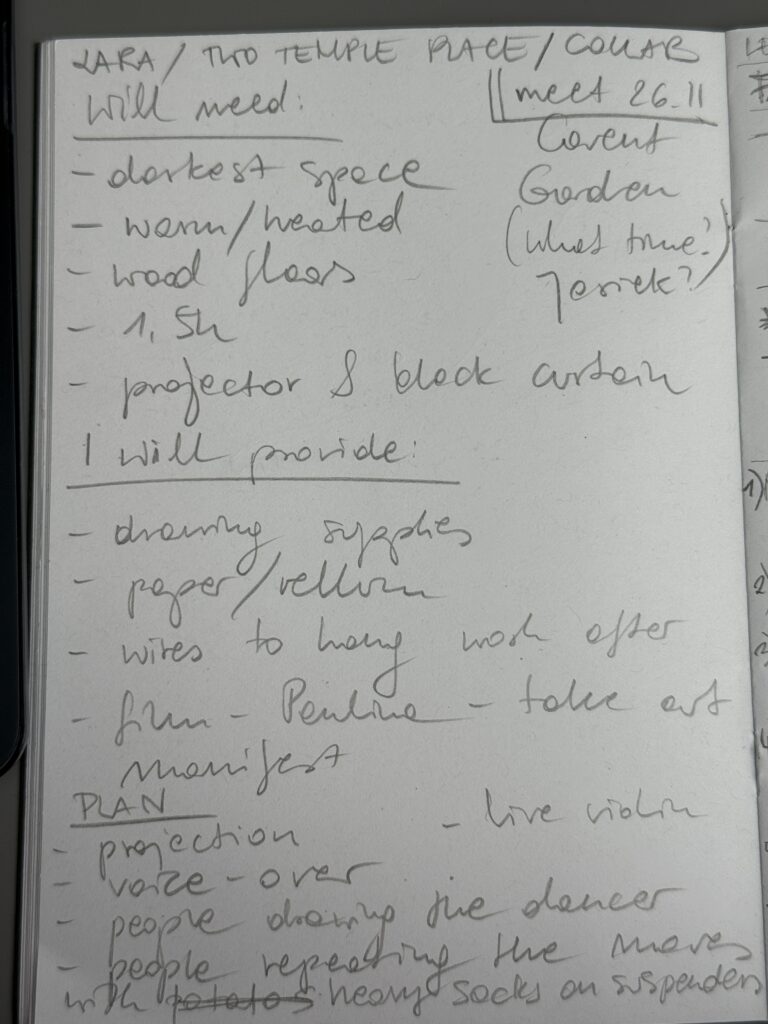 LARA / TWO TEMPLE PLACE / COLLAB
will need:
meet 26.11
Covent
Garden
(what time?)
- darkest space
- warm/heated
- wood floors
- 1,5h
- projector & black curtain
I will provide:
- drawing supplies
- paper/vellum
- wires to hang work after
- film - Paulina - take art
manifest
PLAN
- live violin
- projection
- voice-over
- people drawing the dancer
- people repeating the moves
with potatos heavy socks on suspenders